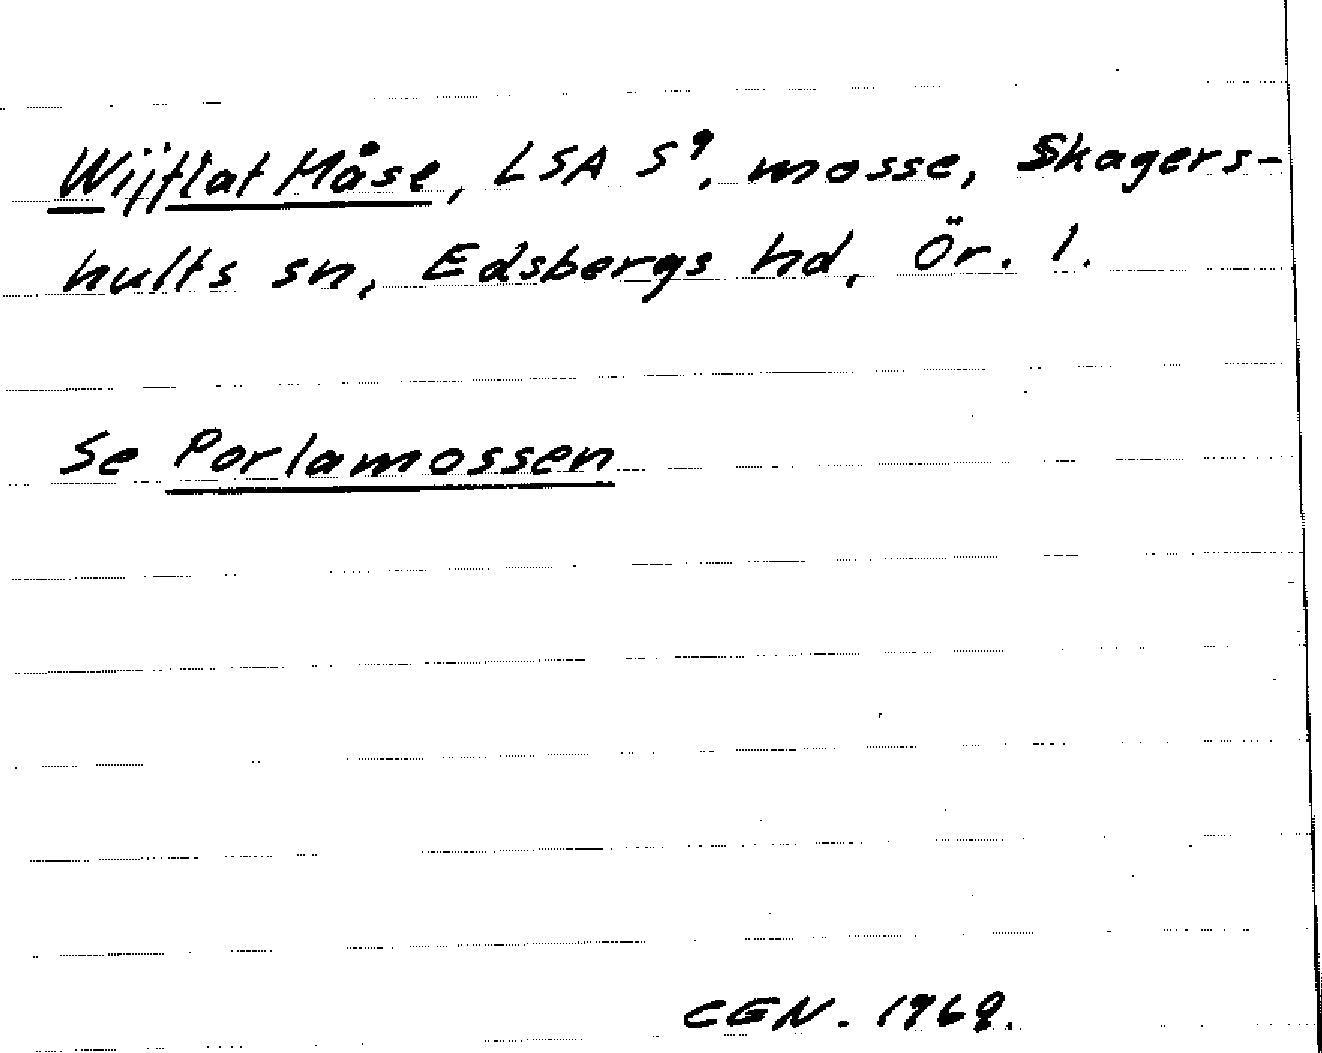 Wijflat Måse, LSA S⁹, mosse, Skagers-
hults sn, Edsbergs hd, Ör. l.
Se Porlamossen
CGN. 1969.